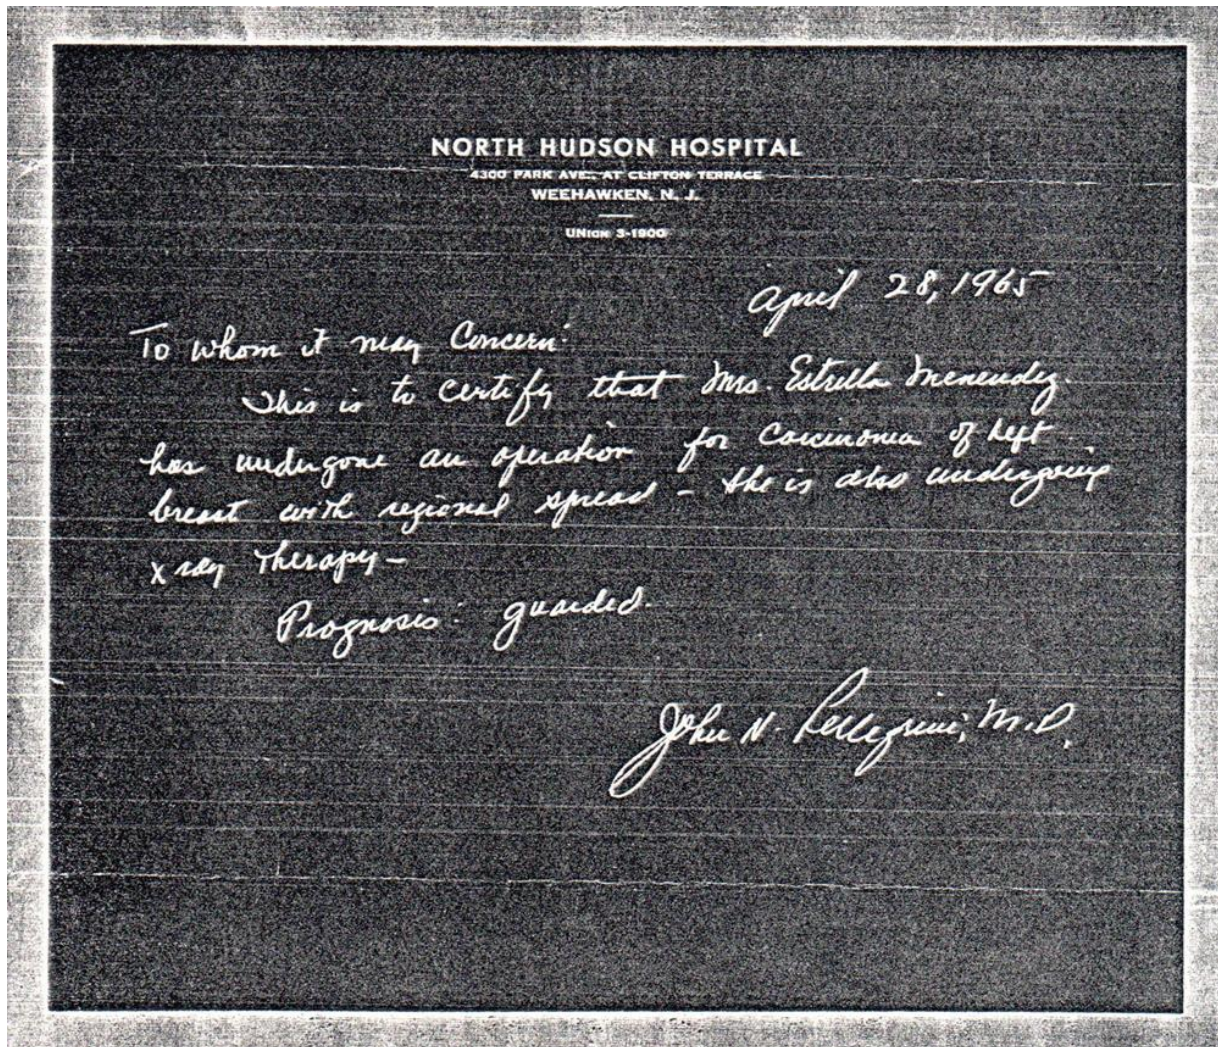 NORTH HUDSON HOSPITAL
4300 PARK AVE., AT CLIFTON TERRACE
WEEHAWKEN, N. J.
UNION 3-1900
April 28, 1965
To whom it may Concern:
This is to certify that Mrs. Estrella Menendez.
has undergone an operation for carcinoma of left
breast with regional spread - She is also undergoing
x ray therapy -
Prognosis: guarded.
John N. Pellegrini, M.D.